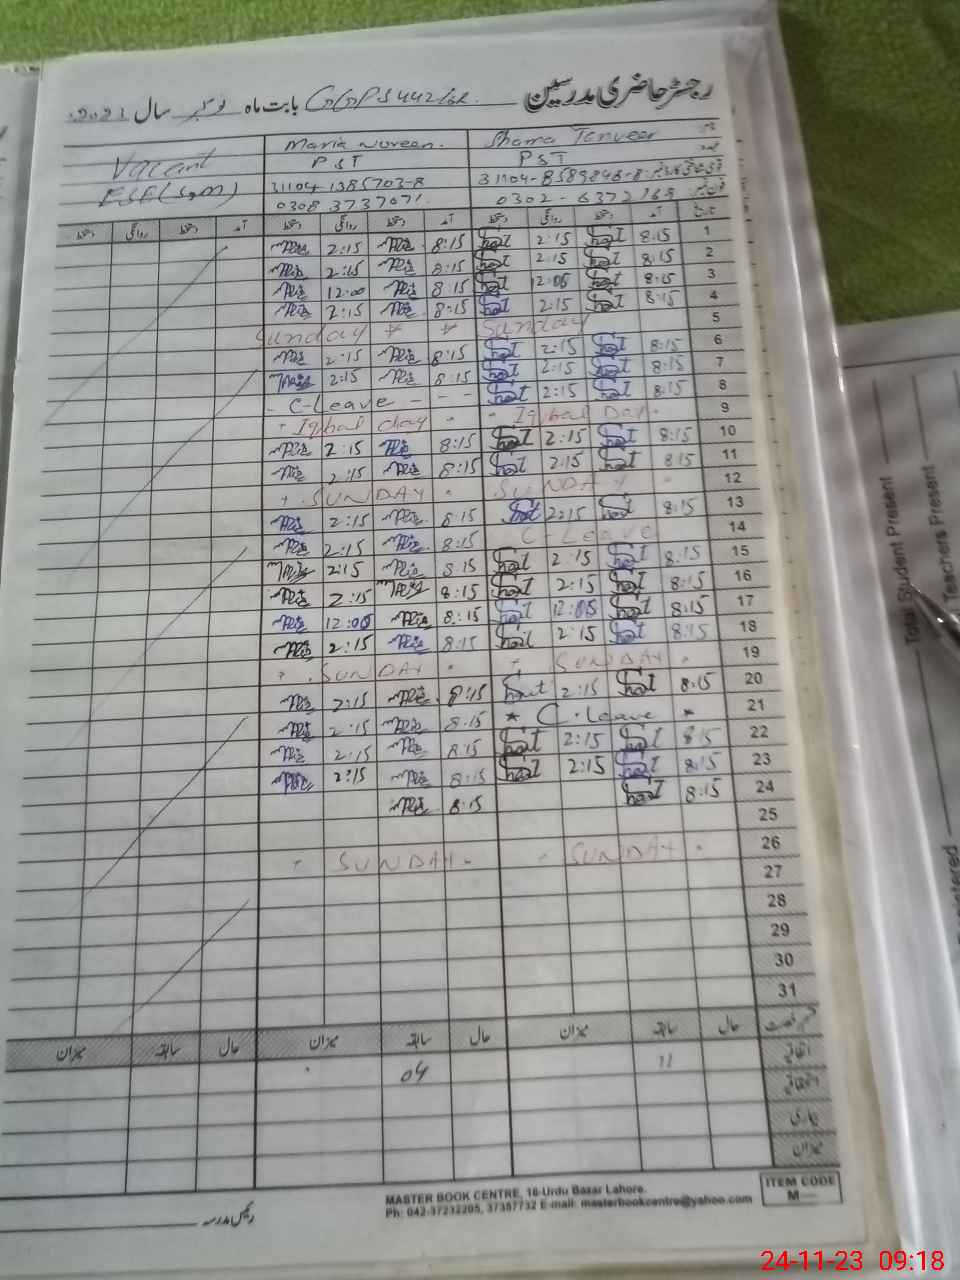 رجسٹر حاضری مدرسین
GGPS 442/6R بابت ماہ نومبر سال 2023
Shama Tanveer Maria Noreen.
PST PST Vacant
31104-8589846-8 31104-1385703-8 ESE(S&M)
0302-6372169 0308 3737071
تاریخ آمد دستخط روانگی دستخط آمد دستخط روانگی دستخط آمد دستخط روانگی دستخط
1 8:15 2:15 8:15 2:15
2 8:15 2:15 8:15 2:15
3 8:15 12:00 8:15 12:00
4 8:15 2:15 8:15 2:15
5 Sunday Sunday
6 8:15 2:15 8:15 2:15
7 8:15 2:15 8:15 2:15
8 8:15 2:15 - C-Leave - - -
9 Iqbal Day Iqbal day
10 8:15 2:15 8:15 2:15
11 8:15 2:15 8:15 2:15
12 SUNDAY SUNDAY
13 8:15 2:15 8:15 2:15
14 C-Leave 8:15 2:15
15 8:15 2:15 8:15 2:15
16 8:15 2:15 8:15 2:15
17 8:15 12:05 8:15 12:00
18 8:15 2:15 8:15 2:15
19 SUNDAY SUNDAY
20 8:15 2:15 8:15 2:15
21 * C-Leave * 8:15 2:15
22 8:15 2:15 8:15 2:15
23 8:15 2:15 8:15 2:15
24 8:15 8:15
25
26 SUNDAY SUNDAY
27
28
29
30
31
حال سابقہ میزان حال سابقہ میزان حال سابقہ میزان
اتفاقیہ 11 04
بیماری
میزان
رئیس مدرسہ
MASTER BOOK CENTRE, 16-Urdu Bazar Lahore.
Ph: 042-37232205, 37357732 E-mail: masterbookcentre@yahoo.com
ITEM CODE
M
Total Student Present
Teachers Present
24-11-23 09:18